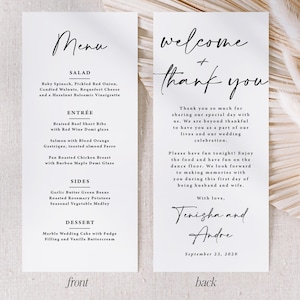 Menu
SALAD
Baby Spinach, Pickled Red Onion,
Candied Walnuts, Roquefort Cheese
and a Hazelnut Balsamic Vinaigrette
ENTRÉE
Braised Beef Short Ribs
with Red Wine Demi glaze
Salmon with Blood Orange
Gastrique, toasted almond Farro
Pan Roasted Chicken Breast
with Burbon Maple Demi Glaze
SIDES
Garlic Butter Green Beans
Roasted Rosemary Potatoes
Seasonal Vegetable Medley
DESSERT
Marble Wedding Cake with Fudge
Filling and Vanilla Buttercream
front
welcome
+
thank you
Thank you so much for
sharing our special day with
us. We are beyond thankful
to have you as a part of our
lives and our wedding
celebration.
Please have fun tonight! Enjoy
the food and have fun on the
dance floor. We look forward
to making memories with
you during this first day of
being husband and wife.
With love,
Tenisha and
Andre
September 23, 2029
back